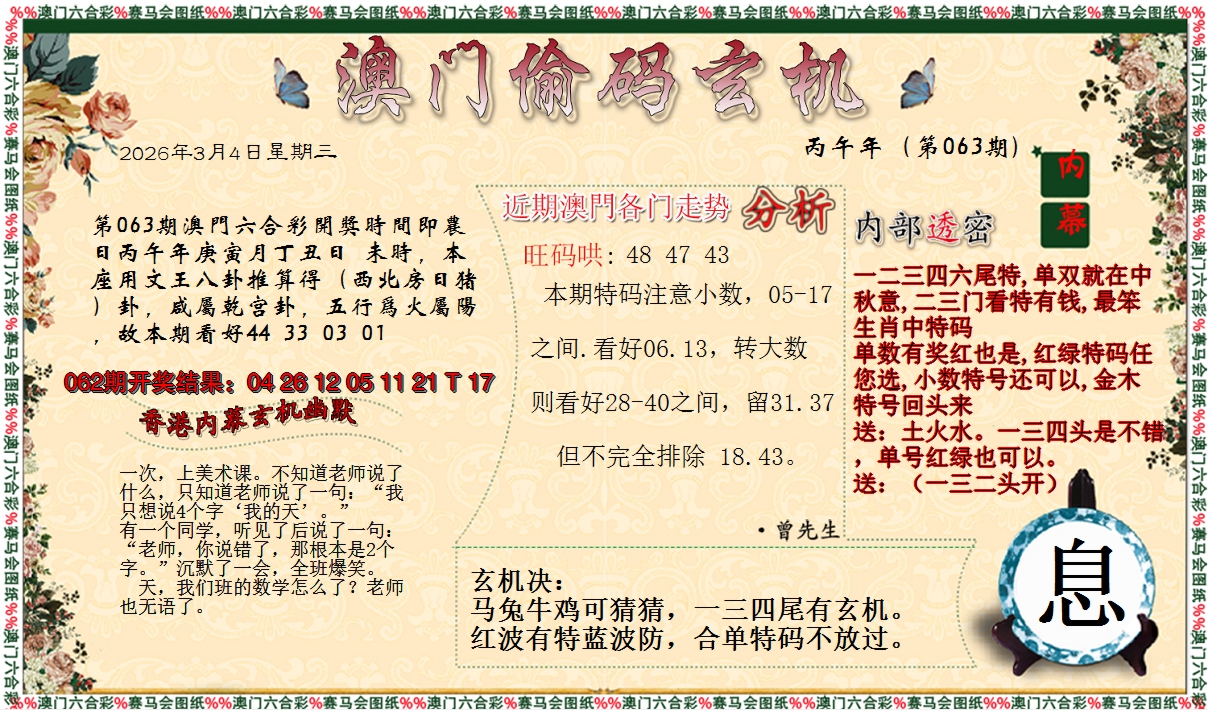 %%澳门六合彩%赛马会图纸%%澳门六合彩%赛马会图纸%%澳门六合彩%赛马会图纸%%澳门六合彩%赛马会图纸%%澳门六合彩%赛马会图纸%%澳门六合彩%赛马会图纸%%
澳门偷码玄机
2026年3月4日星期三
丙午年（第063期）
内
幕
第063期澳門六合彩開獎時間即農
日丙午年庚寅月丁丑日 未時，本
座用文王八卦推算得（西北房日猪
）卦，咸屬乾宫卦，五行爲火屬陽
，故本期看好44 33 03 01
062期开奖结果：04 26 12 05 11 21 T 17
香港内幕玄机幽默
一次，上美术课。不知道老师说了
什么，只知道老师说了一句：“我
只想说4个字‘我的天’。”
有一个同学，听见了后说了一句：
“老师，你说错了，那根本是2个
字。”沉默了一会，全班爆笑。
天，我们班的数学怎么了？老师
也无语了。
近期澳門各门走势 分析
旺码哄: 48 47 43
本期特码注意小数，05-17
之间.看好06.13，转大数
则看好28-40之间，留31.37
但不完全排除 18.43。
·曾先生
内部透密
一二三四六尾特,单双就在中
秋意,二三门看特有钱,最笨
生肖中特码
单数有奖红也是,红绿特码任
您选,小数特号还可以,金木
特号回头来
送：土火水。一三四头是不错
，单号红绿也可以。
送：（一三二头开）
玄机决：
马兔牛鸡可猜猜，一三四尾有玄机。
红波有特蓝波防，合单特码不放过。
息
%%澳门六合彩%赛马会图纸%%澳门六合彩%赛马会图纸%%澳门六合彩%赛马会图纸%%澳门六合彩%赛马会图纸%%澳门六合彩%赛马会图纸%%澳门六合彩%赛马会图纸%%